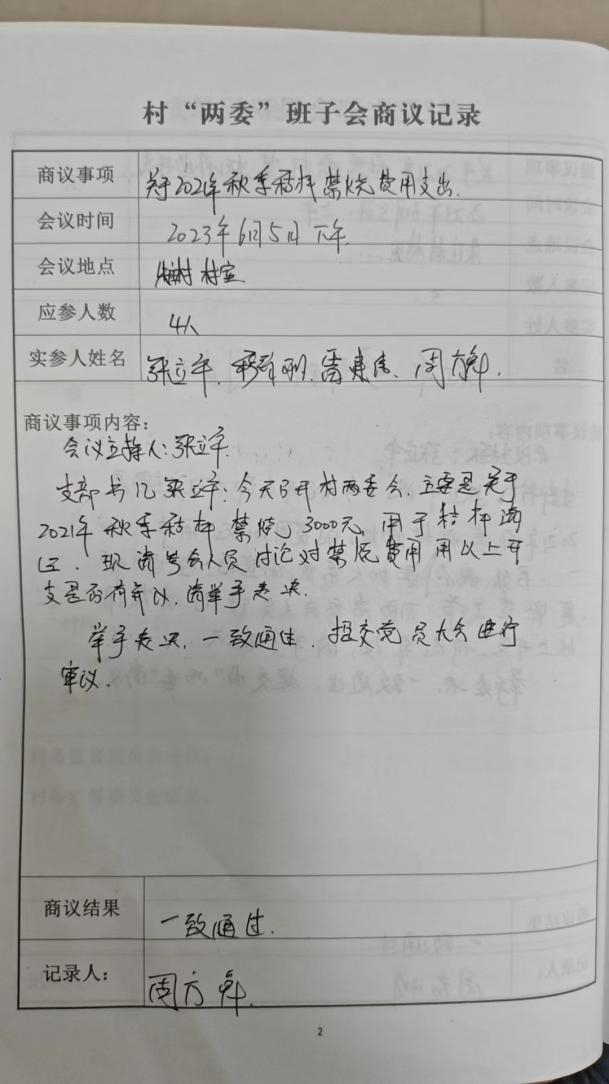 村“两委”班子会商议记录
商议事项 关于2021年秋季秸秆禁烧费用支出.
会议时间 2023年6月5日 下午.
会议地点 村室
应参人数 4人
实参人姓名 张立军. 周方
商议事项内容：
会议主持人:张立军.
支部书记 张立军:今天召开村两委会.主要是关于
2021年秋季秸秆禁烧,3000元.用于秸秆
现请参会人员讨论对禁烧费用用以上开
支是否有异议.请举手表决.
举手表决,一致通过.提交党员大会进行
审议.
商议结果 一致通过.
记录人： 周方
2